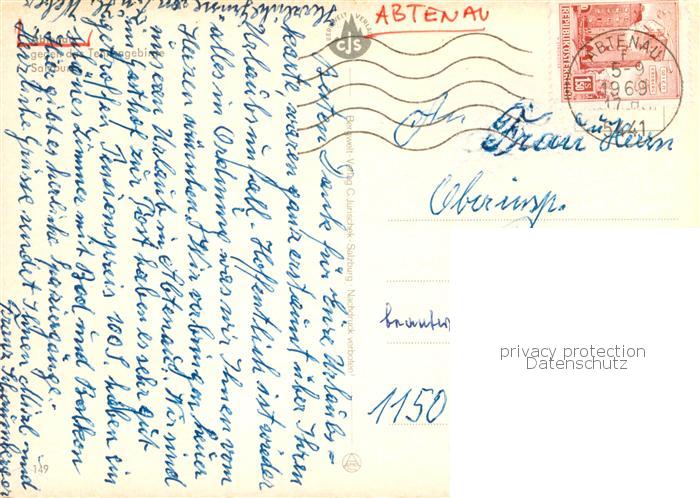 ABTENAU
Abtenau
gegen das Tennengebirge
Salzburg
BERGWELT VERLAG
CJS
Bergwelt Verlag C. Jurischek, Salzburg Nachdruck verboten!
149
REPUBLIK ÖSTERREICH
1.50
ABTENAU
5-9
1969
5441
An
Frau u Herrn
Oberinsp.
beantw
1150
privacy protection
Datenschutz
Besten Dank für Ihre Urlaubs=
karte, waren ganz erstaunt über Ihren
Urlaubsumfall. Hoffentlich ist wieder
alles in Ordnung was wir Ihnen vom
Herzen wünschen. Wir verbringen heuer
unseren Urlaub in Abtenau. Wir sind
im Gasthof zur Post haben es sehr gut
getroffen, Pensionspreis 100 S. haben ein
schönes Zimmer mit Bad und Balkon
Hier gibt es herrliche Spaziergänge.
Herzliche Grüsse sendet Ihnen Mitzi und
Franz